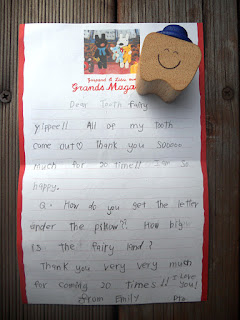 Gaspard & Lisa
Grands Maga
Dear Tooth Fairy
Yippee!! All of my Tooth
come out♡ Thank you Sooooo
much for 20 time!! I'm so
happy.
Q. How do you get the letter
under the pillow?! How big
is the fairy land?
Thank you very very much
for coming 20 times!! I love you!
From Emily